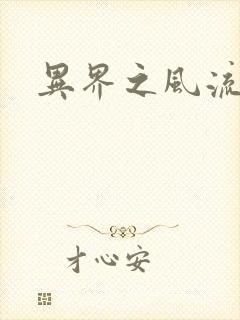 異界之風流
才心安